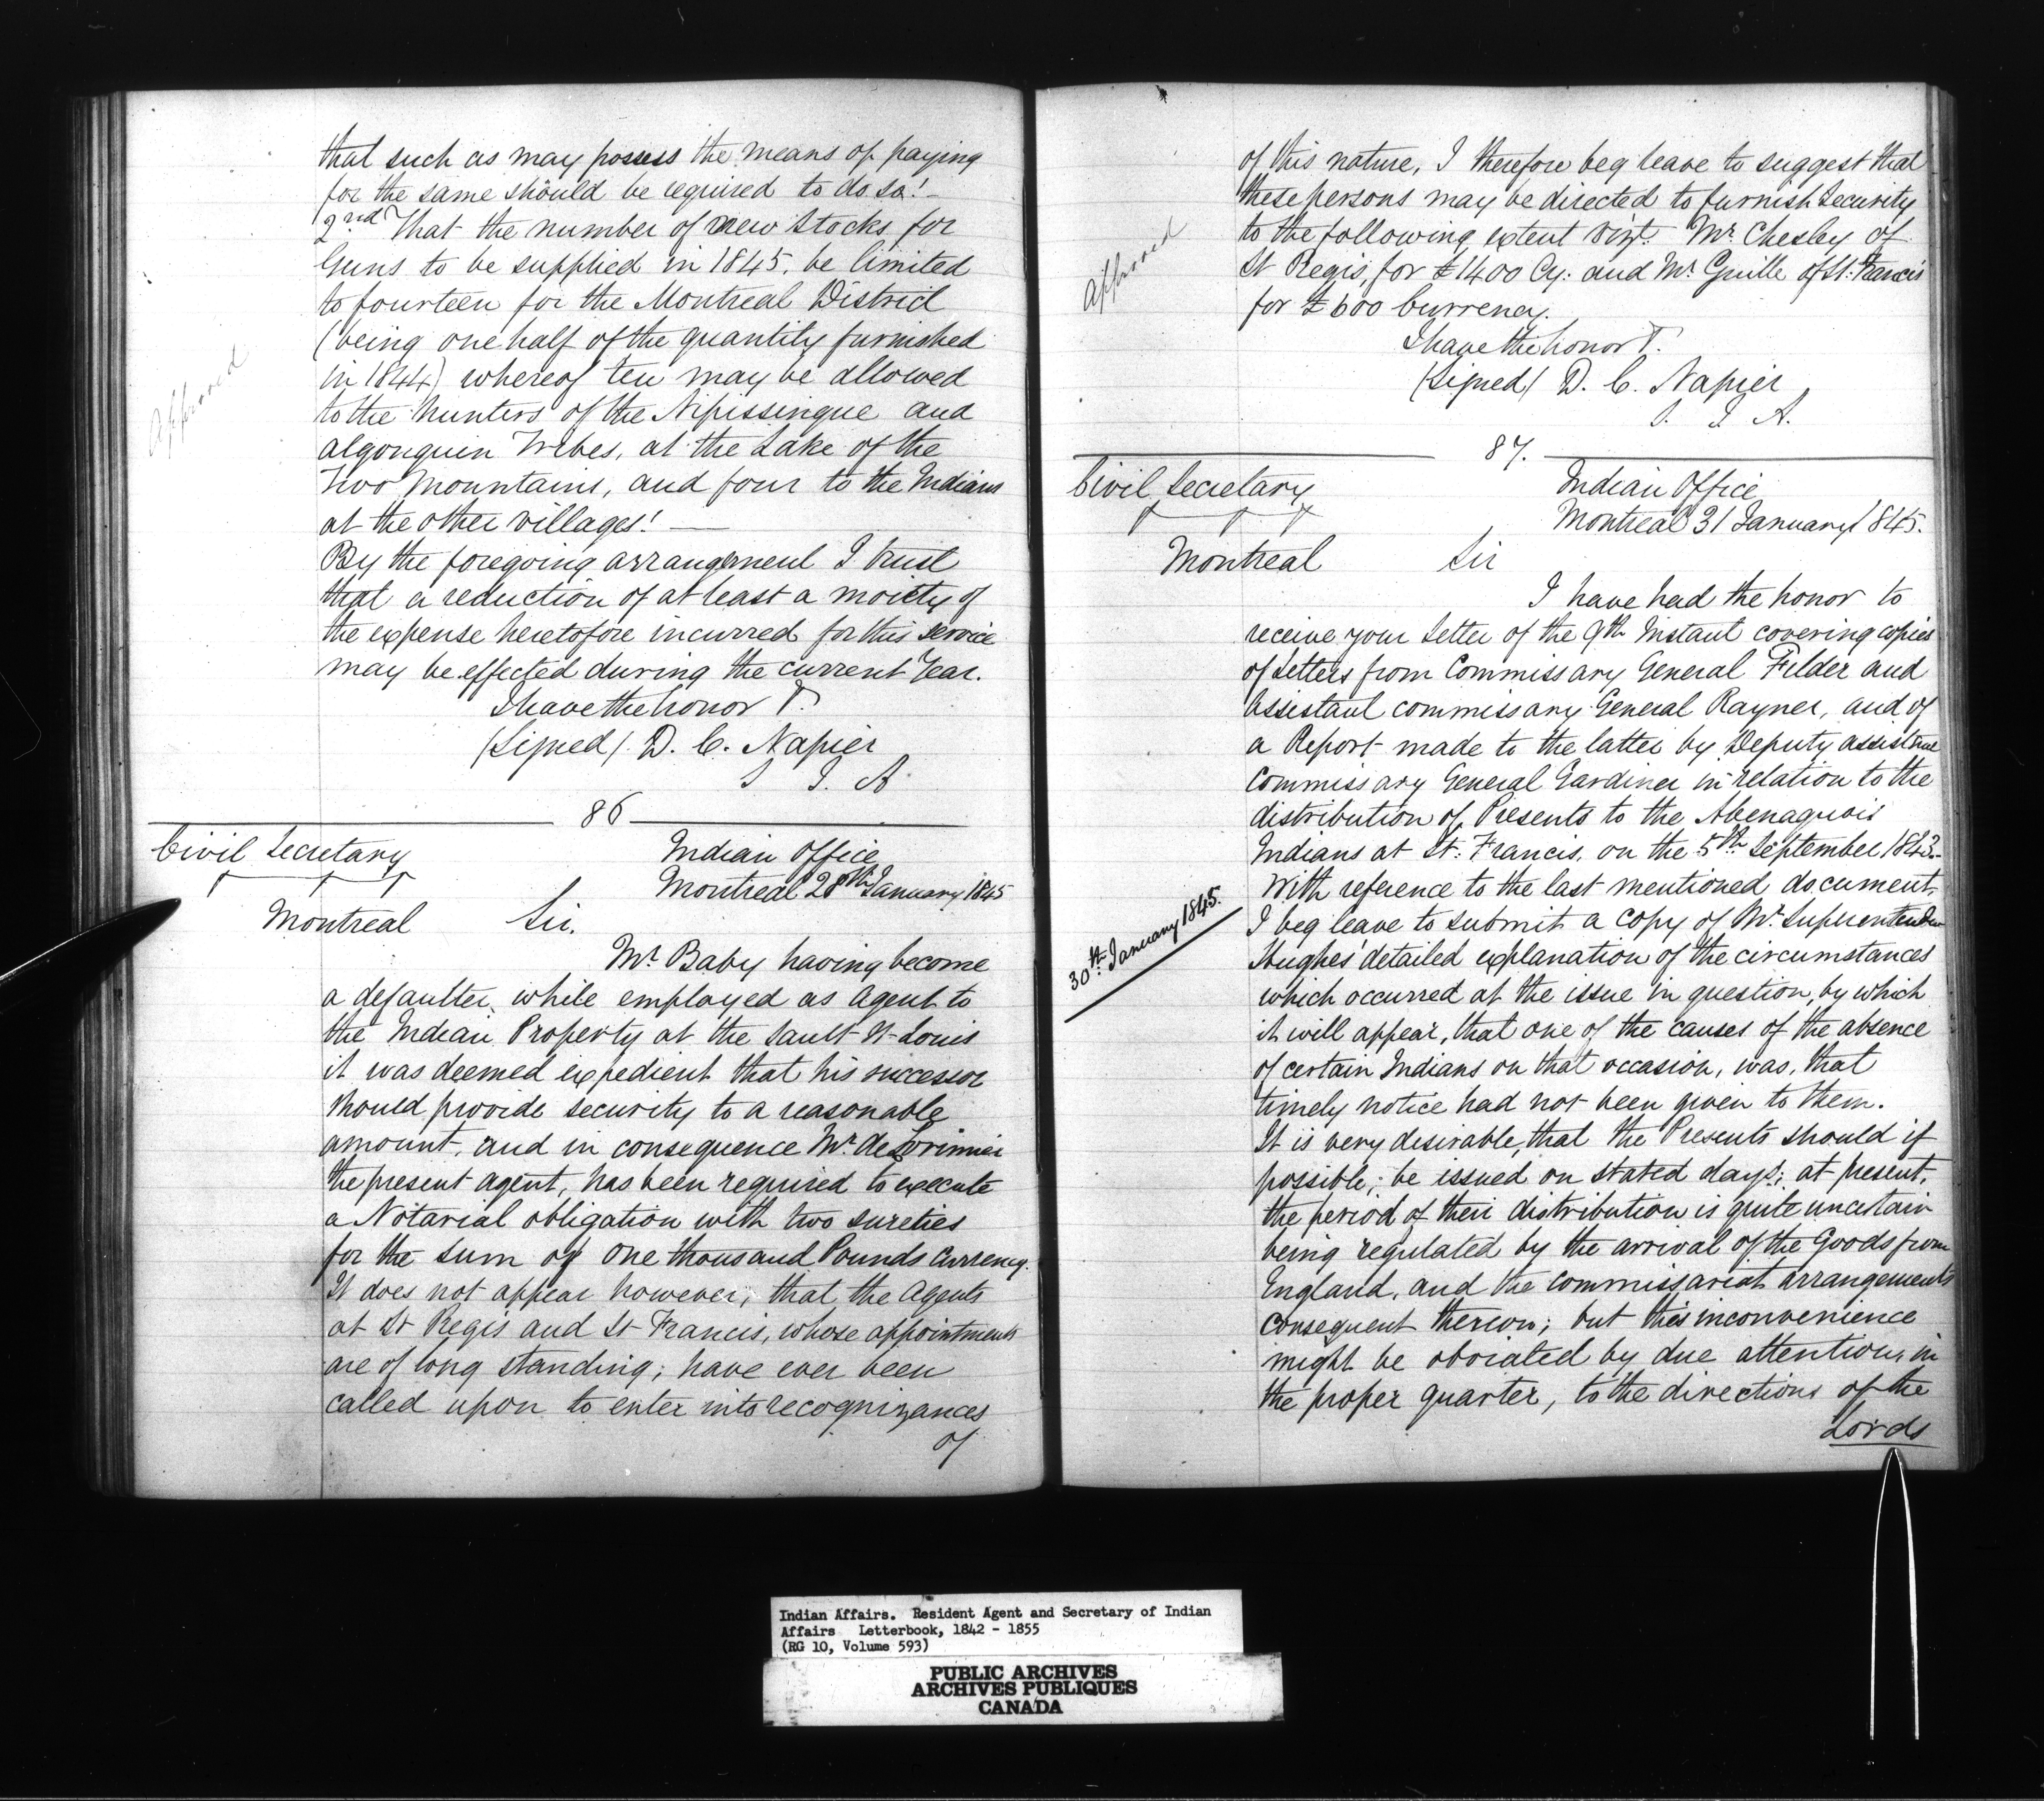 that such as may possess the means of paying
for the same should be required to do so! —
2nd That the number of new Stocks for
Guns to be supplied in 1845, be limited
to fourteen for the Montreal District
(being one half of the quantity furnished
in 1844) whereof ten may be allowed
to the hunters of the Nipissingue and
algonquin Tribes, at the Lake of the
Two Mountains, and four to the Indians
at the other villages! —
Approved
By the foregoing arrangement I trust
that a reduction of at least a moiety of
the expense heretofore incurred for this service
may be effected during the current Year.
I have the honor
(Signed) D. C. Napier
S I. A
86
Civil Secretary
Indian Office
Montreal 28th January 1845
Montreal Sir.
Mr Baby having become
a defaulter while employed as Agent to
the Indian Property at the Sault St Louis
it was deemed expedient that his successor
should provide security to a reasonable
amount, and in consequence Mr de Lorimier
the present agent, has been required to execute
a Notarial obligation with two sureties
for the sum of One thousand Pounds Currency.
It does not appear however, that the Agents
at St Regis and St Francis, whose appointments
are of long standing; have ever been
called upon to enter into recognizances
of
of this nature, I therefore beg leave to suggest that
these persons may be directed to furnish Security
to the following extent vizt. Mr Chesley of
St Regis, for £1400 Cy: and Mr Guille of St: Francis
for £600 Currency.
Approved
I have the honor
(Signed) D. C. Napier
S. I A.
87.
Civil Secretary
Indian Office
Montreal 31 January 1845.
Montreal Sir
I have had the honor to
receive your Letter of the 9th Instant covering copies
of Letters from Commissary General Filder and
Assistant Commissary General Rayner, and of
a Report made to the latter by Deputy Assistant
Commissary General Gardiner in relation to the
distribution of Presents to the Abenaquois
Indians at St: Francis, on the 5th September 1843.-
With reference to the last mentioned document,
I beg leave to submit a copy of Mr Superintendent
30th January 1845.
Hughes' detailed explanation of the circumstances
which occurred at the issue in question, by which
it will appear, that one of the causes of the absence
of certain Indians on that occasion, was, that
timely notice had not been given to them.
It is very desirable, that the Presents should if
possible; be issued on stated days; at present,
the period of their distribution is quite uncertain
being regulated by the arrival of the Goods from
England, and the Commissariat arrangements
consequent thereon; but this inconvenience
might be obviated by due attention, in
the proper quarter, to the directions of the
Lords
Indian Affairs. Resident Agent and Secretary of Indian
Affairs Letterbook, 1842 - 1855
(RG 10, Volume 593)
PUBLIC ARCHIVES
ARCHIVES PUBLIQUES
CANADA